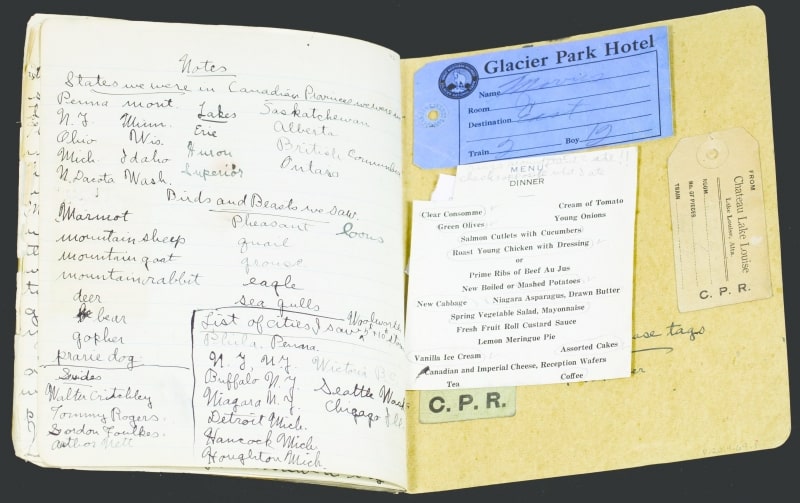 Notes
States we were in Canadian Provinces we were in
Penna mont Lakes Saskatchewan
N.J. Minn. Erie Alberta
Ohio Wis. Huron British Columbia
Mich. Idaho Superior Ontario
N. Dacota Wash.
Birds and Beasts we saw.
Marmot Pheasant loons
mountain sheep quail
mountain goat grouse
mountain rabbit eagle
deer sea gulls
bear
gopher
prarie dog.
Guides
Walter Critchley
Tommy Rogers.
Gordon Foulkes.
Nett
List of cities I saw Woolworth
Phila. Penna.
N.J., N.Y. Victoria B.C.
Buffalo N.Y. Seattle Wash
Niagara N.Y. Chicago Ill
Detroit Mich.
Hancock Mich.
Houghton Mich.
Glacier Park Hotel
Name
Room
Destination East
Train 2 Boy 12
MENU
DINNER
Clear Consomme Cream of Tomato
Green Olives Young Onions
Salmon Cutlets with Cucumbers
Roast Young Chicken with Dressing
or
Prime Ribs of Beef Au Jus
New Boiled or Mashed Potatoes
New Cabbage Niagara Asparagus, Drawn Butter
Spring Vegetable Salad, Mayonnaise
Fresh Fruit Roll Custard Sauce
Lemon Meringue Pie
Vanilla Ice Cream Assorted Cakes
Canadian and Imperial Cheese, Reception Wafers
Tea Coffee
C. P. R.
FROM
Chateau Lake Louise
Lake Louise, Alta.
ROOM
No. OF PIECES
TRAIN
C. P. R.
tags